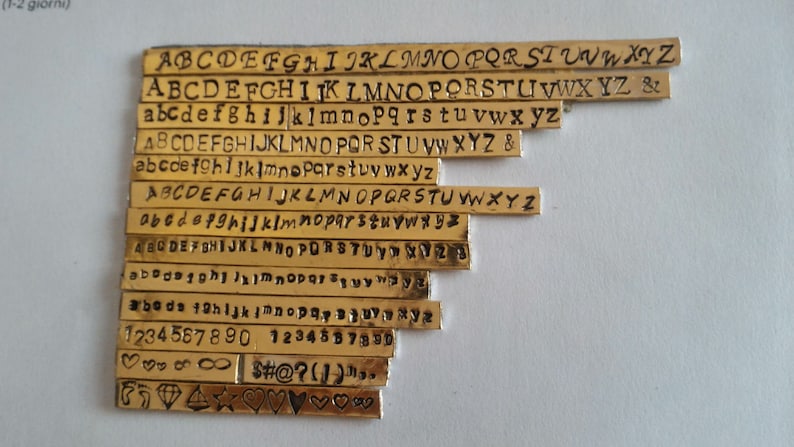 (1-2 giorni)
ABCDEFGHIJKLMNOPQRSTUVWXYZ
ABCDEFGHIJKLMNOPQRSTUVWXYZ &
abcdefghijklmnopqrstuvwxyz
ABCDEFGHIJKLMNOPQRSTUVWXYZ &
abcdefghijklmnopqrstuvwxyz
ABCDEFGHIJKLMNOPQRSTUVWXYZ
abcdefghijklmnopqrstuvwxyz
ABCDEFGHIJKLMNOPQRSTUVWXYZ &
abcdefghijklmnopqrstuvwxyz
abcdefghijklmnopqrstuvwxyz
1234567890 1234567890
$#@?(!)",.